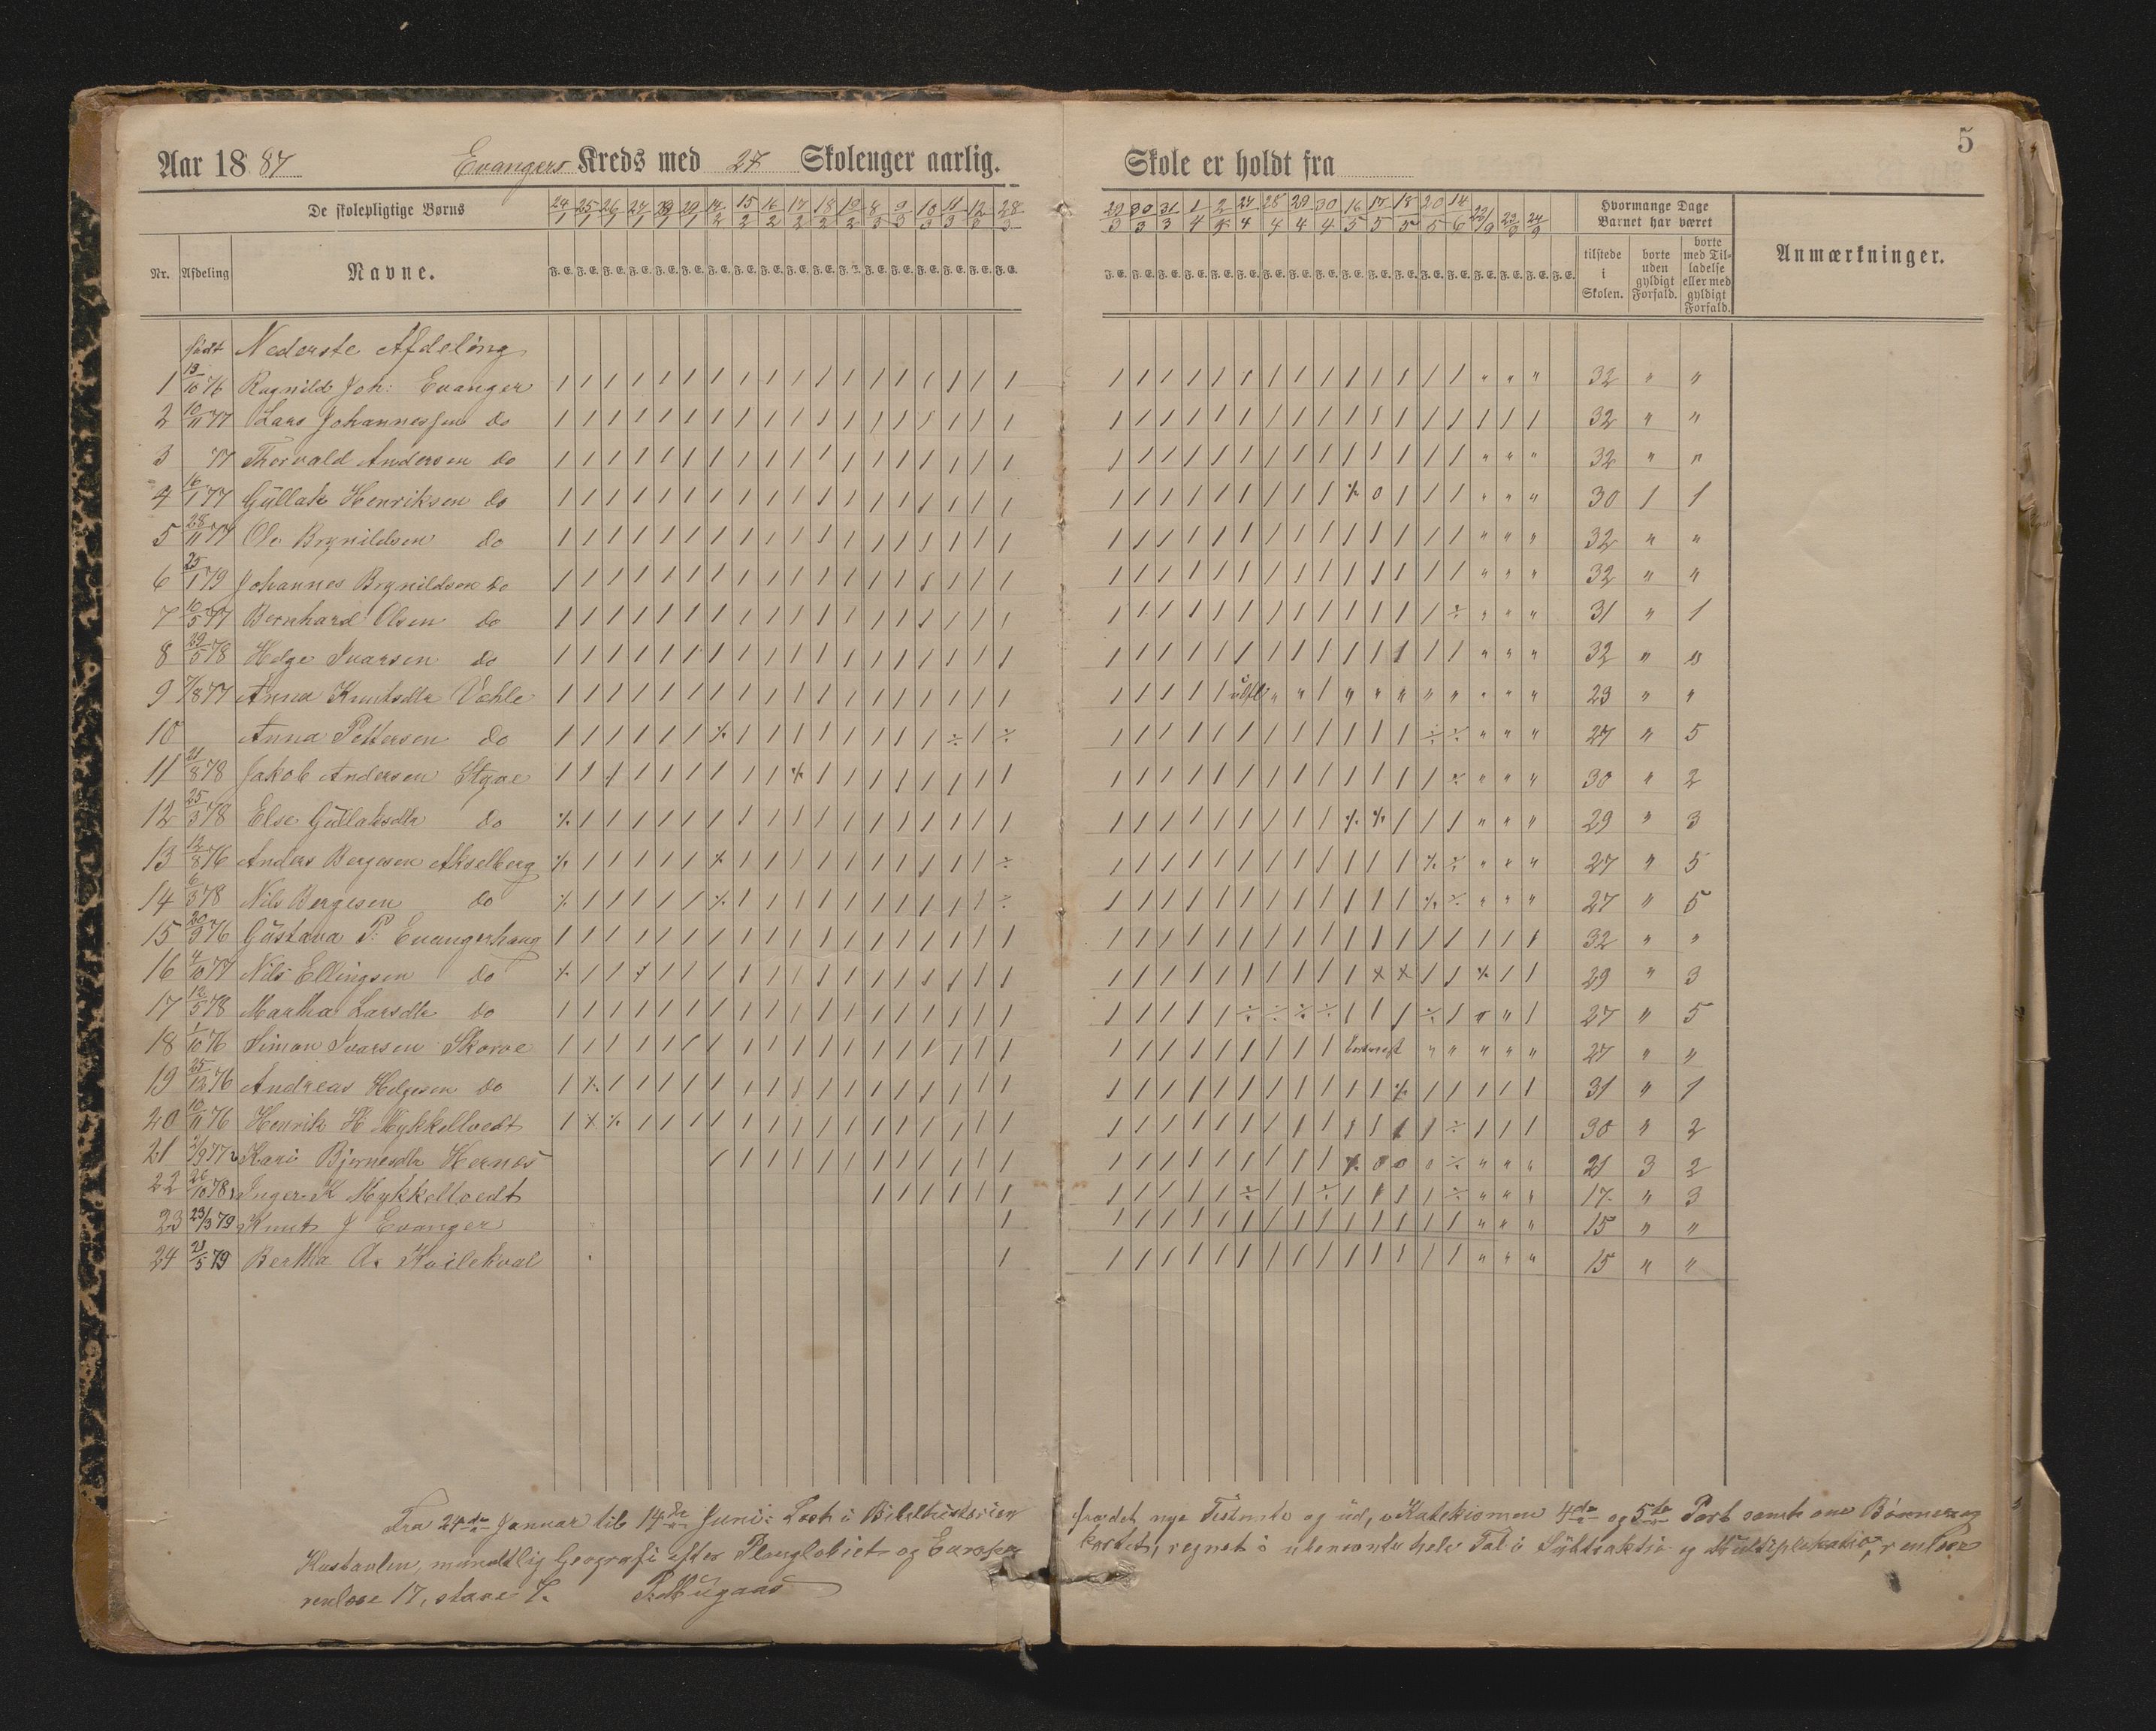 5
Aar 1887 Evangers Kreds med 27 Skolenger aarlig. Skole er holdt fra
De skolepligtige Børns 24/1 25/1 26/1 27/1 28/1 29/1 14/2 15/2 16/2 17/2 18/2 19/2 8/3 9/3 10/3 11/3 12/3 28/3 29/3 30/3 31/3 1/4 2/4 27/4 28/4 29/4 30/4 16/5 17/5 18/5 20/5 14/6 22/9 23/9 24/9 Hvormange Dage Barnet har været
Nr. Afdeling Navne. F. E. tilstede i Skolen. borte uden gyldigt Forfald. borte med Tilladelse eller med gyldigt Forfald. Anmærkninger.
født Nederste Afdeling
1 13/10 76 Ragnilde Joh: Evanger 32 " "
2 10/11 77 Lars Johannessen do 32 " "
3 77 Thorvald Andersen do 32 " "
4 16/1 77 Gullak Henriksen do 30 1 1
5 28/11 77 Ole Brynildsen do 32 " "
6 25/1 79 Johannes Brynildsen do 32 " "
7 10/5 77 Bernhard Olsen do 31 " 1
8 29/5 78 Helge Ivarsen do 32 " "
9 7/8 77 Anna Knutsdtr Væhle 23 " "
10 Anna Pettersen do 27 " 5
11 21/8 78 Jakob Andersen Styve 30 " 2
12 25/3 78 Else Gullaksdtr do 29 " 3
13 12/8 76 Anders Bergesen Akselberg 27 " 5
14 6/3 78 Nils Bergesen do 27 " 5
15 20/3 76 Gustava P: Evangerhaug 32 " "
16 4/10 77 Nils Ellingsen do 29 " 3
17 12/5 78 Martha Larsdtr do 27 " 5
18 1/10 76 Simon Ivarsen Skorve 27 " "
19 25/12 76 Andreas Helgesen do 31 " 1
20 10/11 76 Henrik H Mykkeltvedt 30 " 2
21 2/9 77 Kari Bjørnesdtr Hernes 21 3 2
22 26/10 78 Inger K Mykkeltvedt 17 " 3
23 23/3 79 Knut J Evanger 15 " "
24 21/5 79 Bertha A. Kvilekval 15 " "
Fra 24de Januar til 14de Juni: Læst i Bibelhistorien
Kostavlen, mundtlig Geografi efter Planglobiet og Europa
renlose 17, stave 7. P. Mugaas
fra det nye Testmte og ud, Katekismen 4de og 5te Part samt om Bønnen og
kartet, regnet i ubenævnte hele Tal i Subtraktio og Multiplikatio,